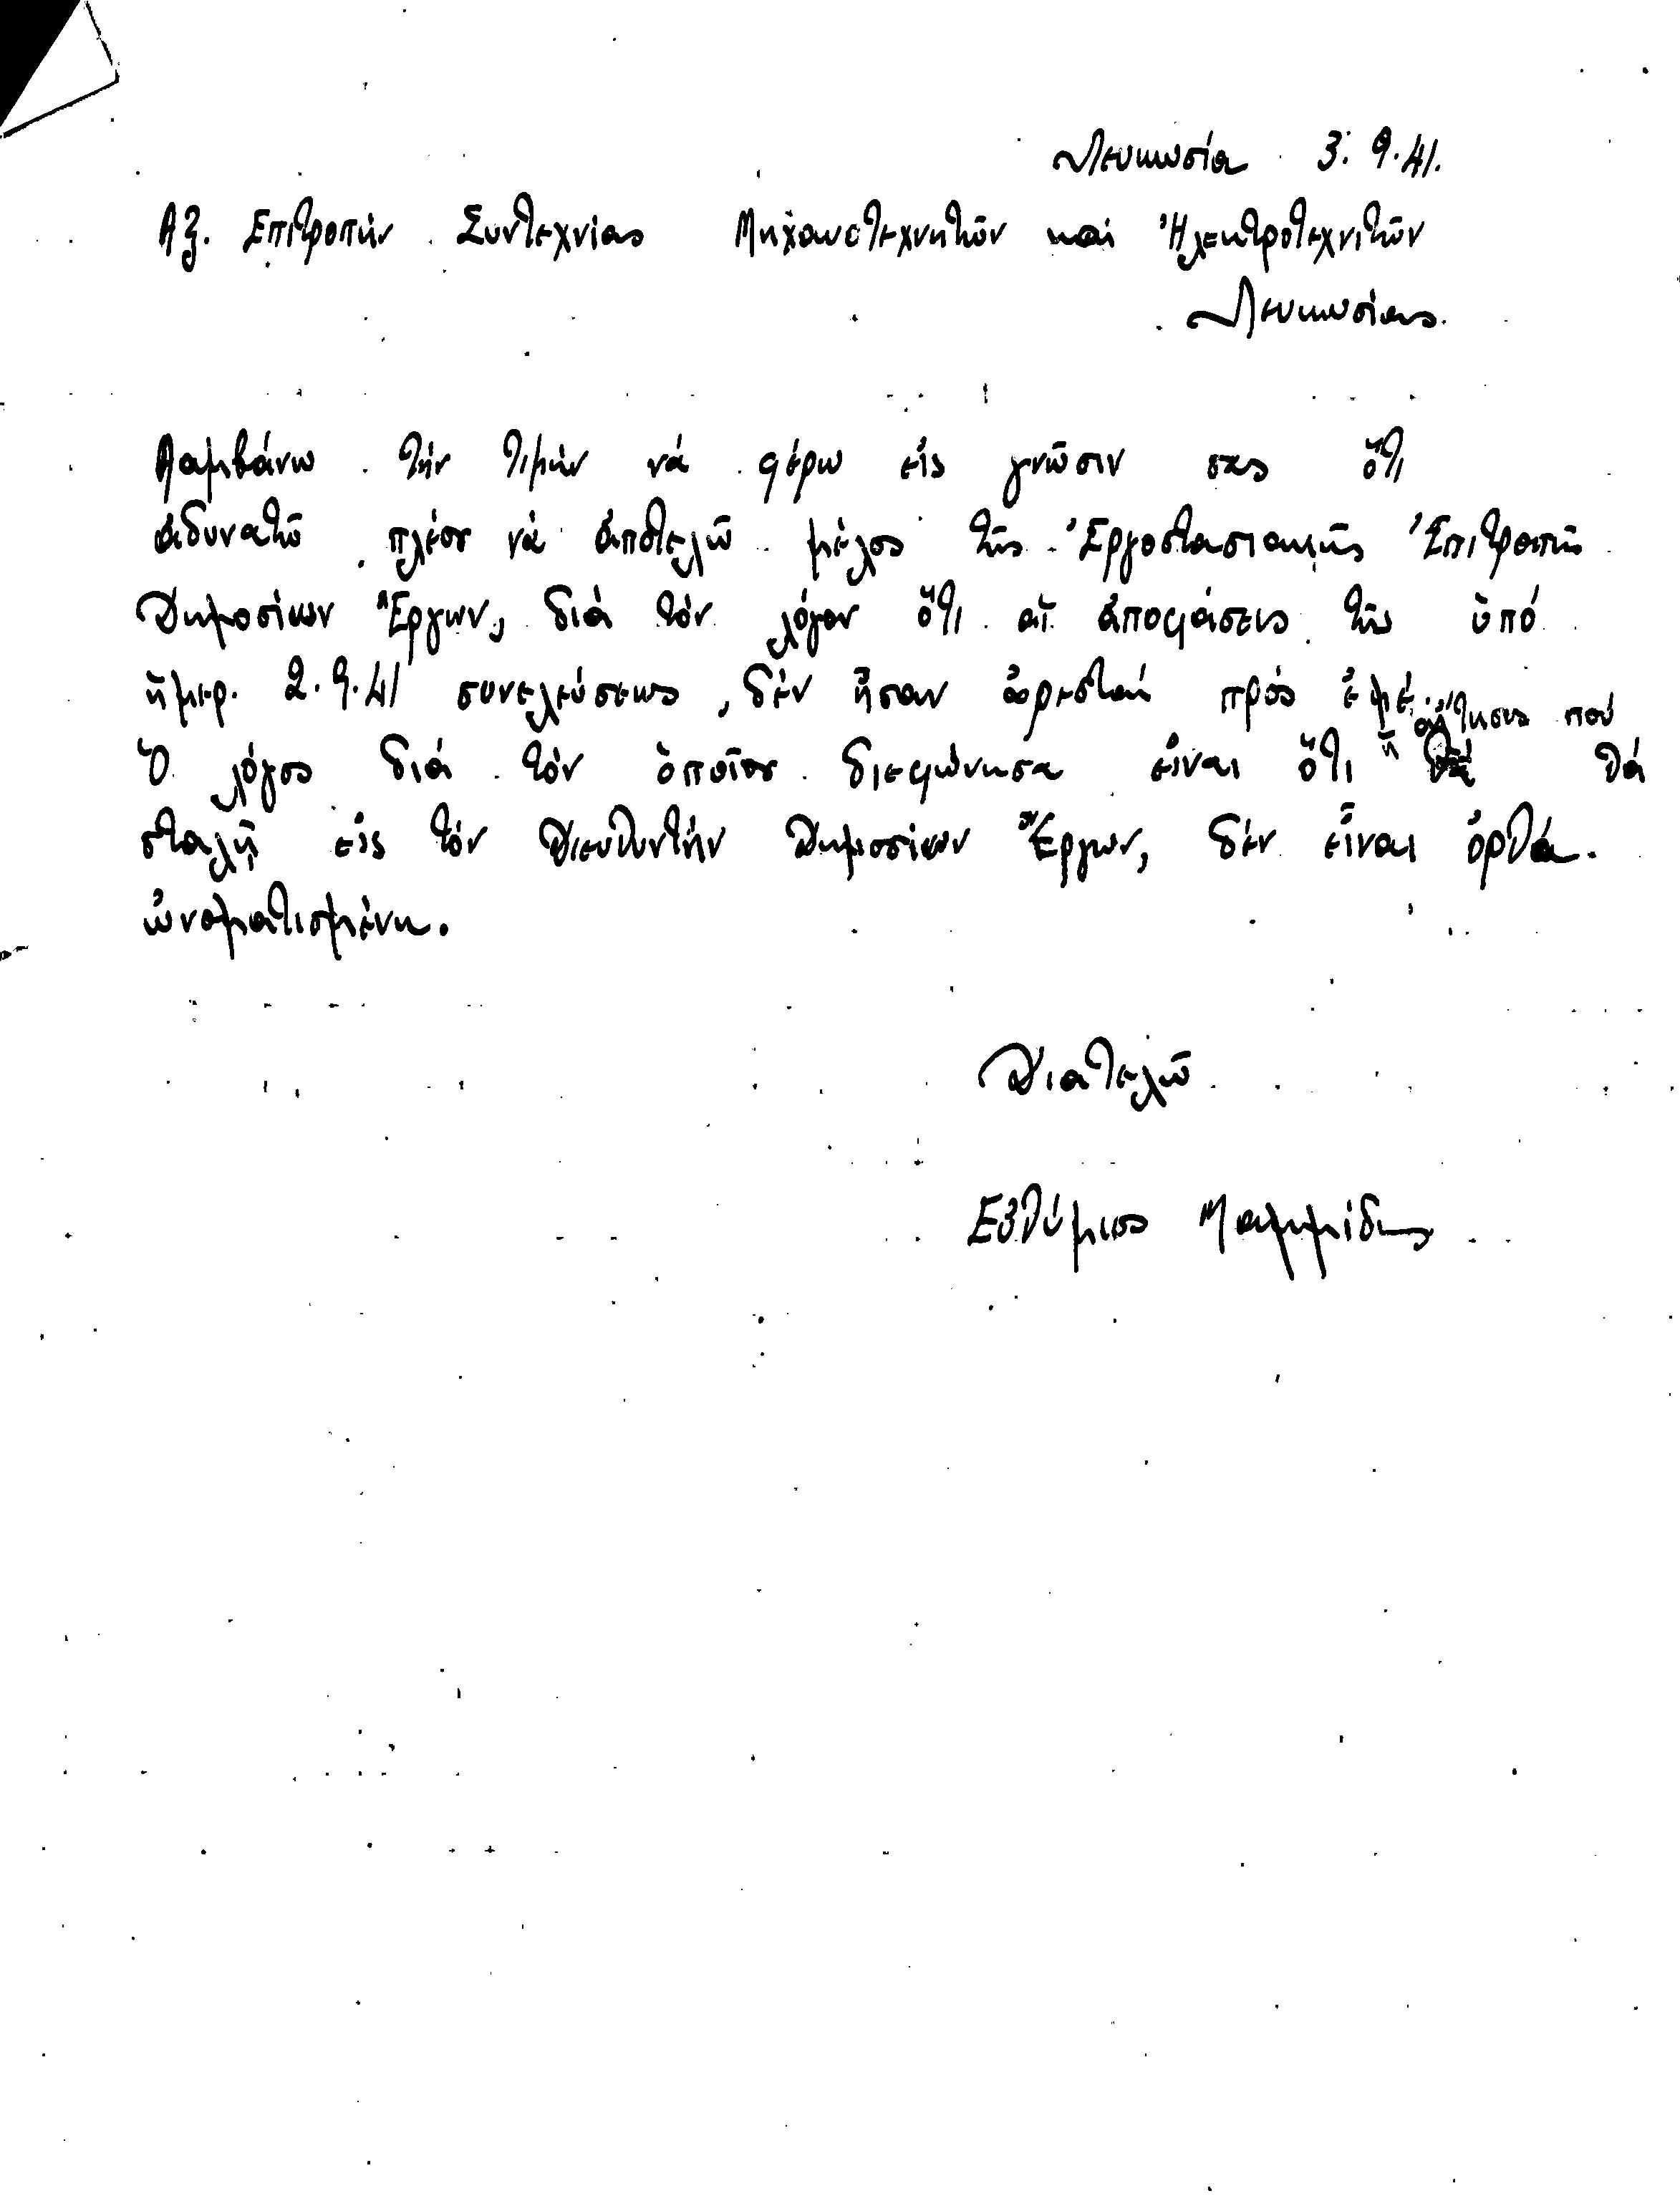 Λευκωσία 3. 9. 41.
Αξ. Επιτροπήν Συντεχνίας Μηχανοτεχνητῶν καί Ἠλεκτροτεχνιτῶν
Λευκωσίας.
Λαμβάνω τήν τιμήν νά φέρω εἰς γνῶσιν σας ὅτι
ἀδυνατῶ πλέον νά ἀποτελῶ μέλος τῆς Ἐργοστασιακῆς Ἐπιτροπῆς
Δημοσίων Ἔργων, διά τόν λόγον ὅτι αἱ ἀποφάσεις τῆς ὑπό
ἡμερ. 2.9.41 συνελεύσεως, δέν ἦσαν ἀρεσταί πρός ἐμέ.
Ὁ λόγος διά τόν ὁποῖον διεφώνησα εἶναι ὅτι ἡ αἴτησις πού θά
σταλῇ εἰς τόν Διευθυντήν Δημοσίων Ἔργων, δέν εἶναι ὀρθά
ὠνοματισμένη.
Διατελῶ
Εὐθύμιος Μαμμίδης